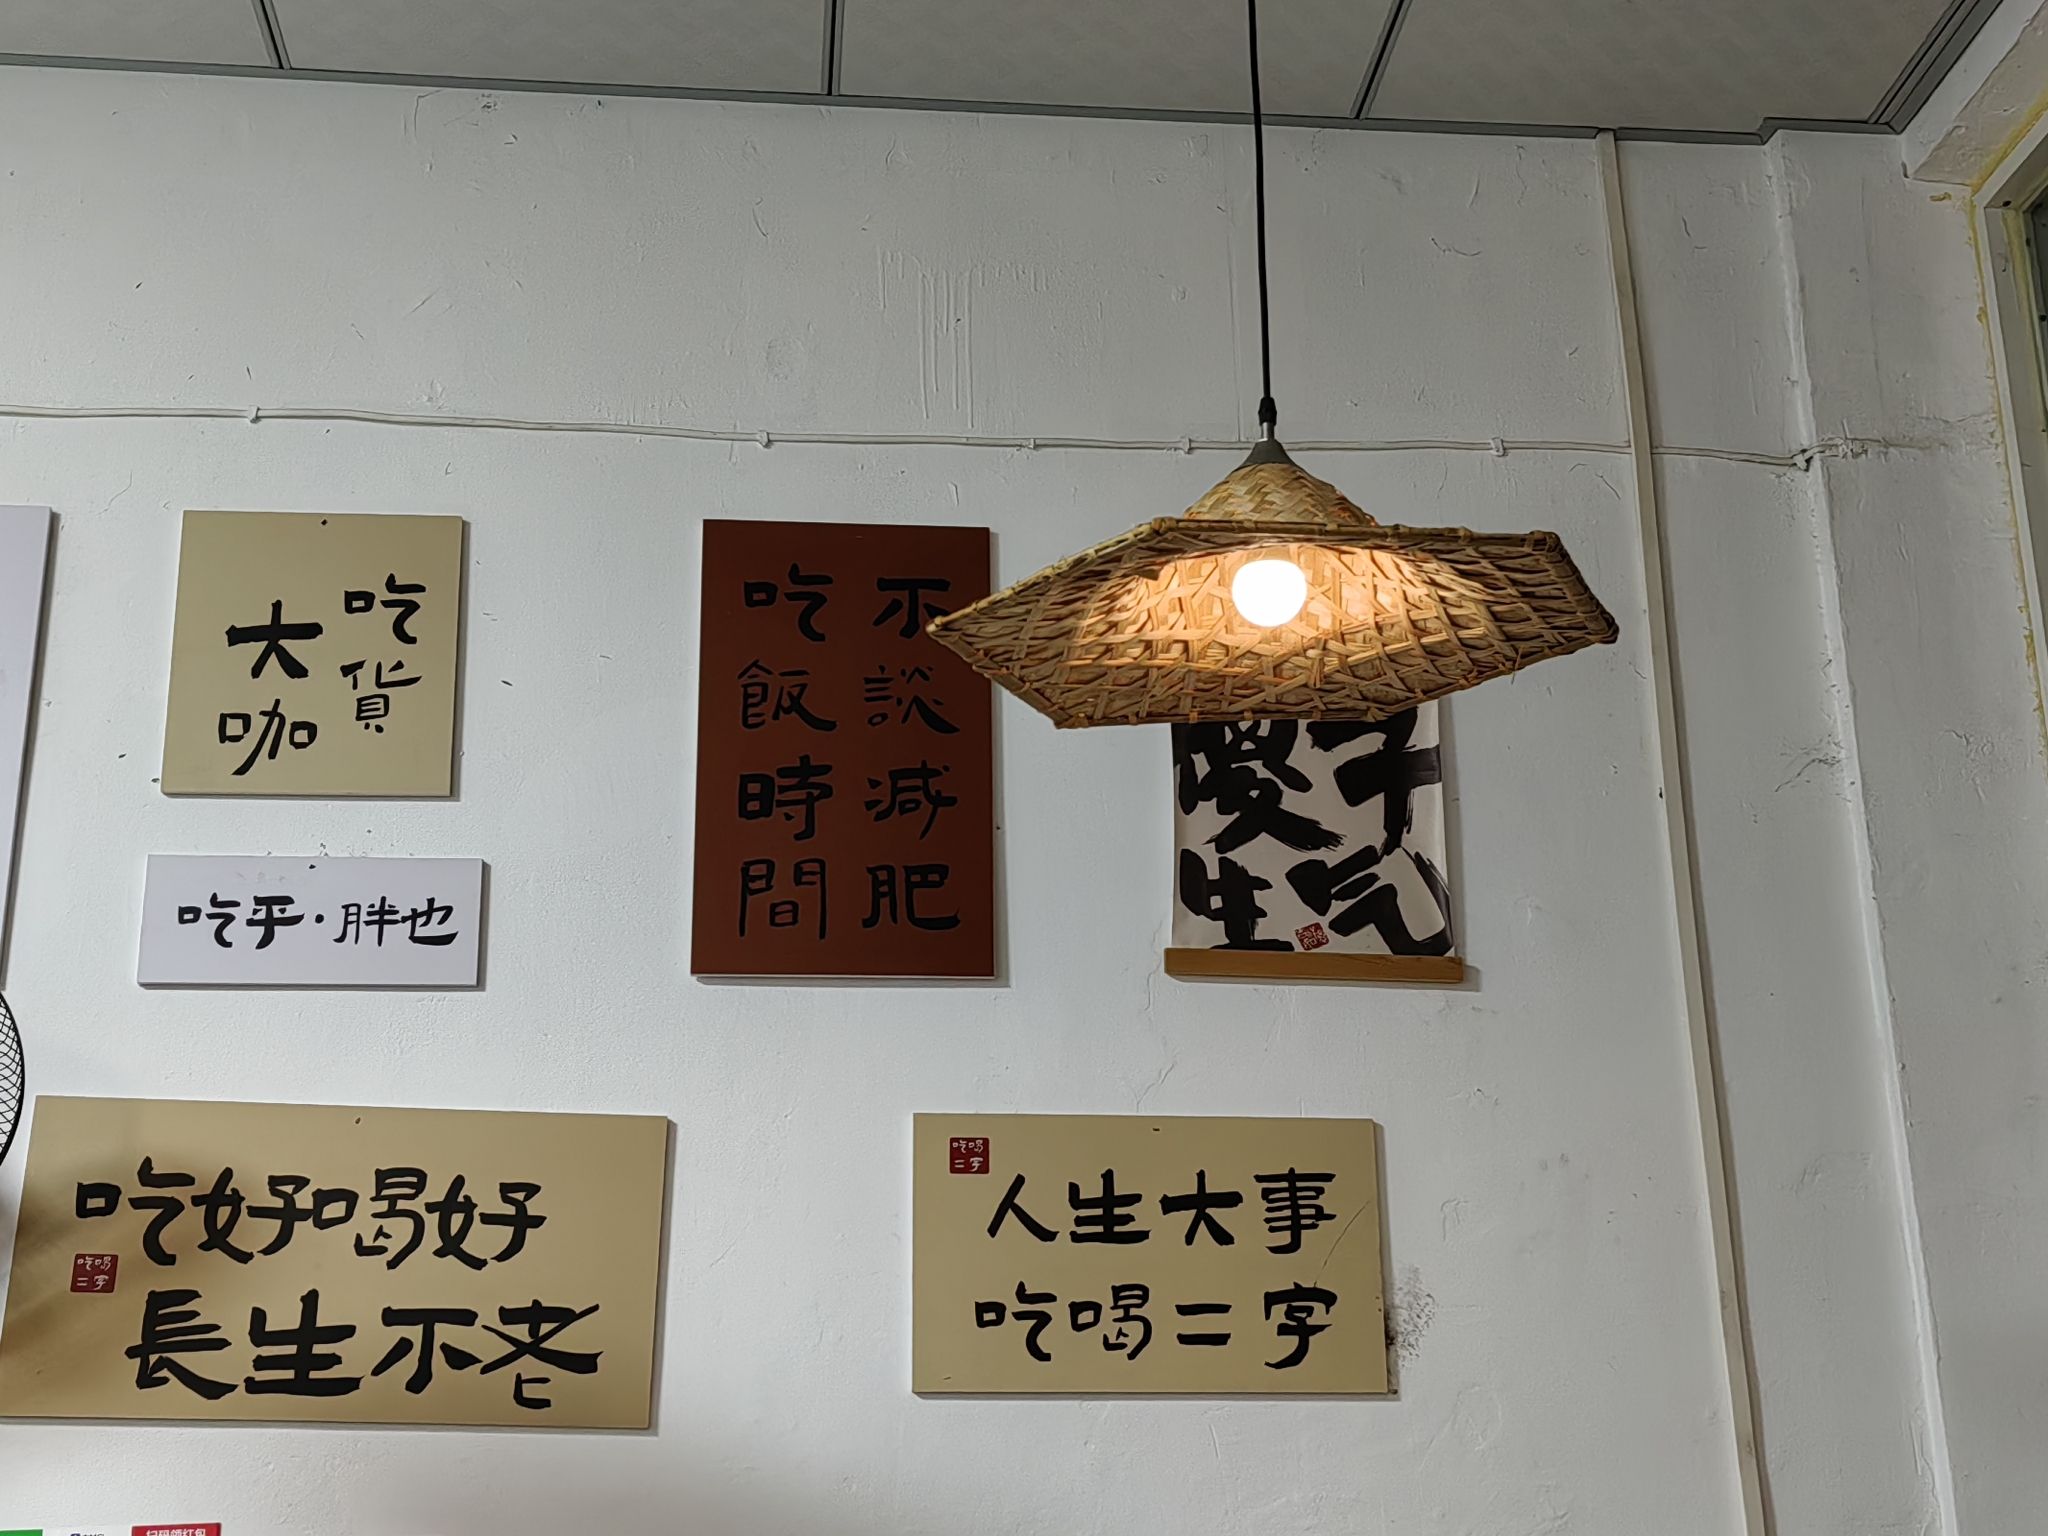 吃貨
大咖
吃乎·胖也
不談減肥
吃飯時間
傻子
生气
吃好喝好
長生不老
吃喝
二字
吃喝
二字
人生大事
吃喝二字
扫码领红包